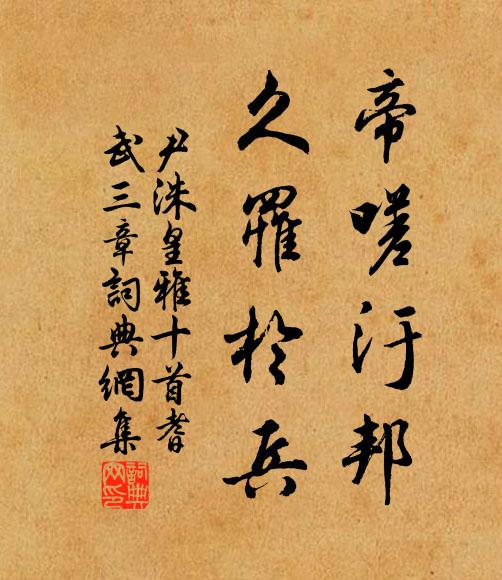 帝嗟汙邦
久罹於兵
尹洙皇雅十首耆
武三章詞典網集
詞典网印